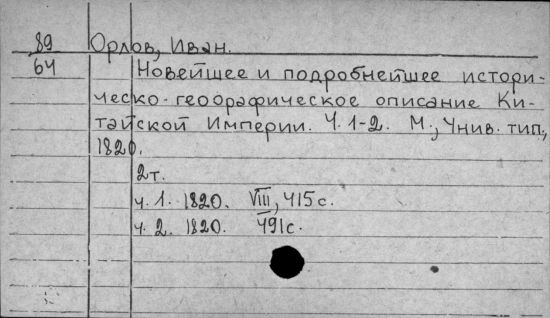 89 Орлов, Иван.
64 Новейшее и подробнейшее истори-
ческо-географическое описание Ки-
тайской Империи. Ч. 1-2. М., Унив. тип.,
1820.
2 т.
ч. 1. 1820. VIII, 415 с.
ч. 2. 1820. 491 с.